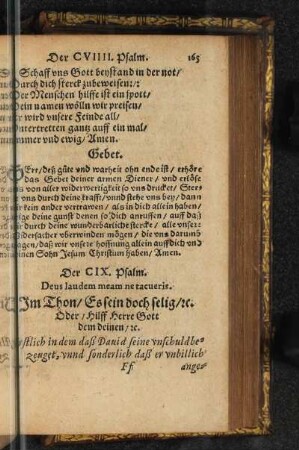 Der CVIIII. Psalm. 163
Schaff vns Gott beystand in der not/
Durch dich sterck zubeweisen/:/
Der Menschen hilffe ist ein spott/
Dein namen wölln wir preisen/
wird vnsere Feinde all/
vntertretten gantz auff ein mal/
immer vnd ewig/ Amen.
Gebet.
HErr/ deß güte vnd warheit ohn ende ist/ erhöre
das Gebet deiner armen Diener/ vnd erlöse
vns von aller widerwertigkeit so vns drucket/ Ster
vns durch deine krafft/ vnnd stehe vns bey/ dann
kein ander vertrawen/ als in dich allein haben/
deine gunst denen so dich anruffen/ auff daß
durch deine wunderbärliche stercke/ alle vnser
Widersacher vberwinden mögen/ die vns darumb
daß wir vnsere hoffnung allein auff dich vnd
deinen Sohn Jesum Christum haben/ Amen.
Der CIX. Psalm.
Deus laudem meam ne tacueris.
Im Thon/ Es sein doch selig/ ⁊c.
Oder/ Hilff Herre Gott
dem deinen/ ⁊c.
in dem daß Dauid seine vnschuld be-
zeuget, vnnd sonderlich daß er vnbillich
Ff anges-